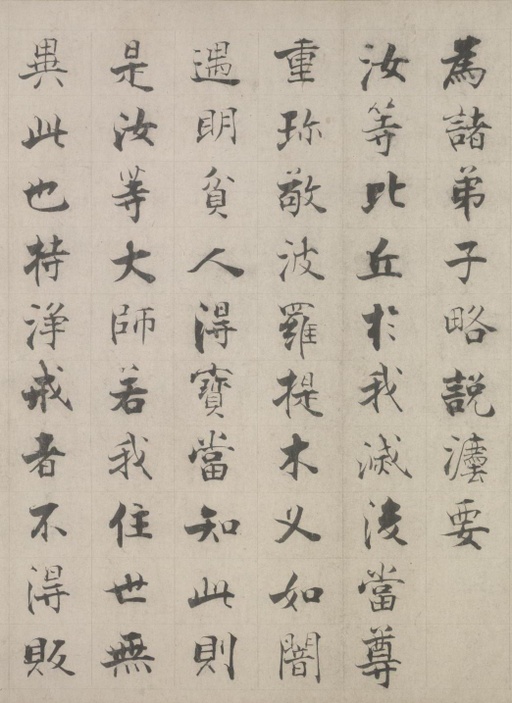 為諸弟子略説灋要
汝等比丘於我滅後當尊
重珎敬波羅提木叉如闇
遇明貧人得寶當知此則
是汝等大師若我住世無
異此也持淨戒者不得販